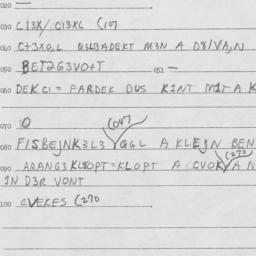 020
030 C13X/ C13XC (107
040 C+3XO,L QGLBADEKT M3N A D8/VAJN
050 BET2G3VO+T 051 —
060 DEKCI = FARDEK DUS K1NT M1T A K
070 O
(047
080 FISBEJNK3L3 QGL A KLEJN BEN
090 ARANG3KLOPT = KLOPT A CVOK A N
(270
1N D3R VONT
100 CVEKES (270